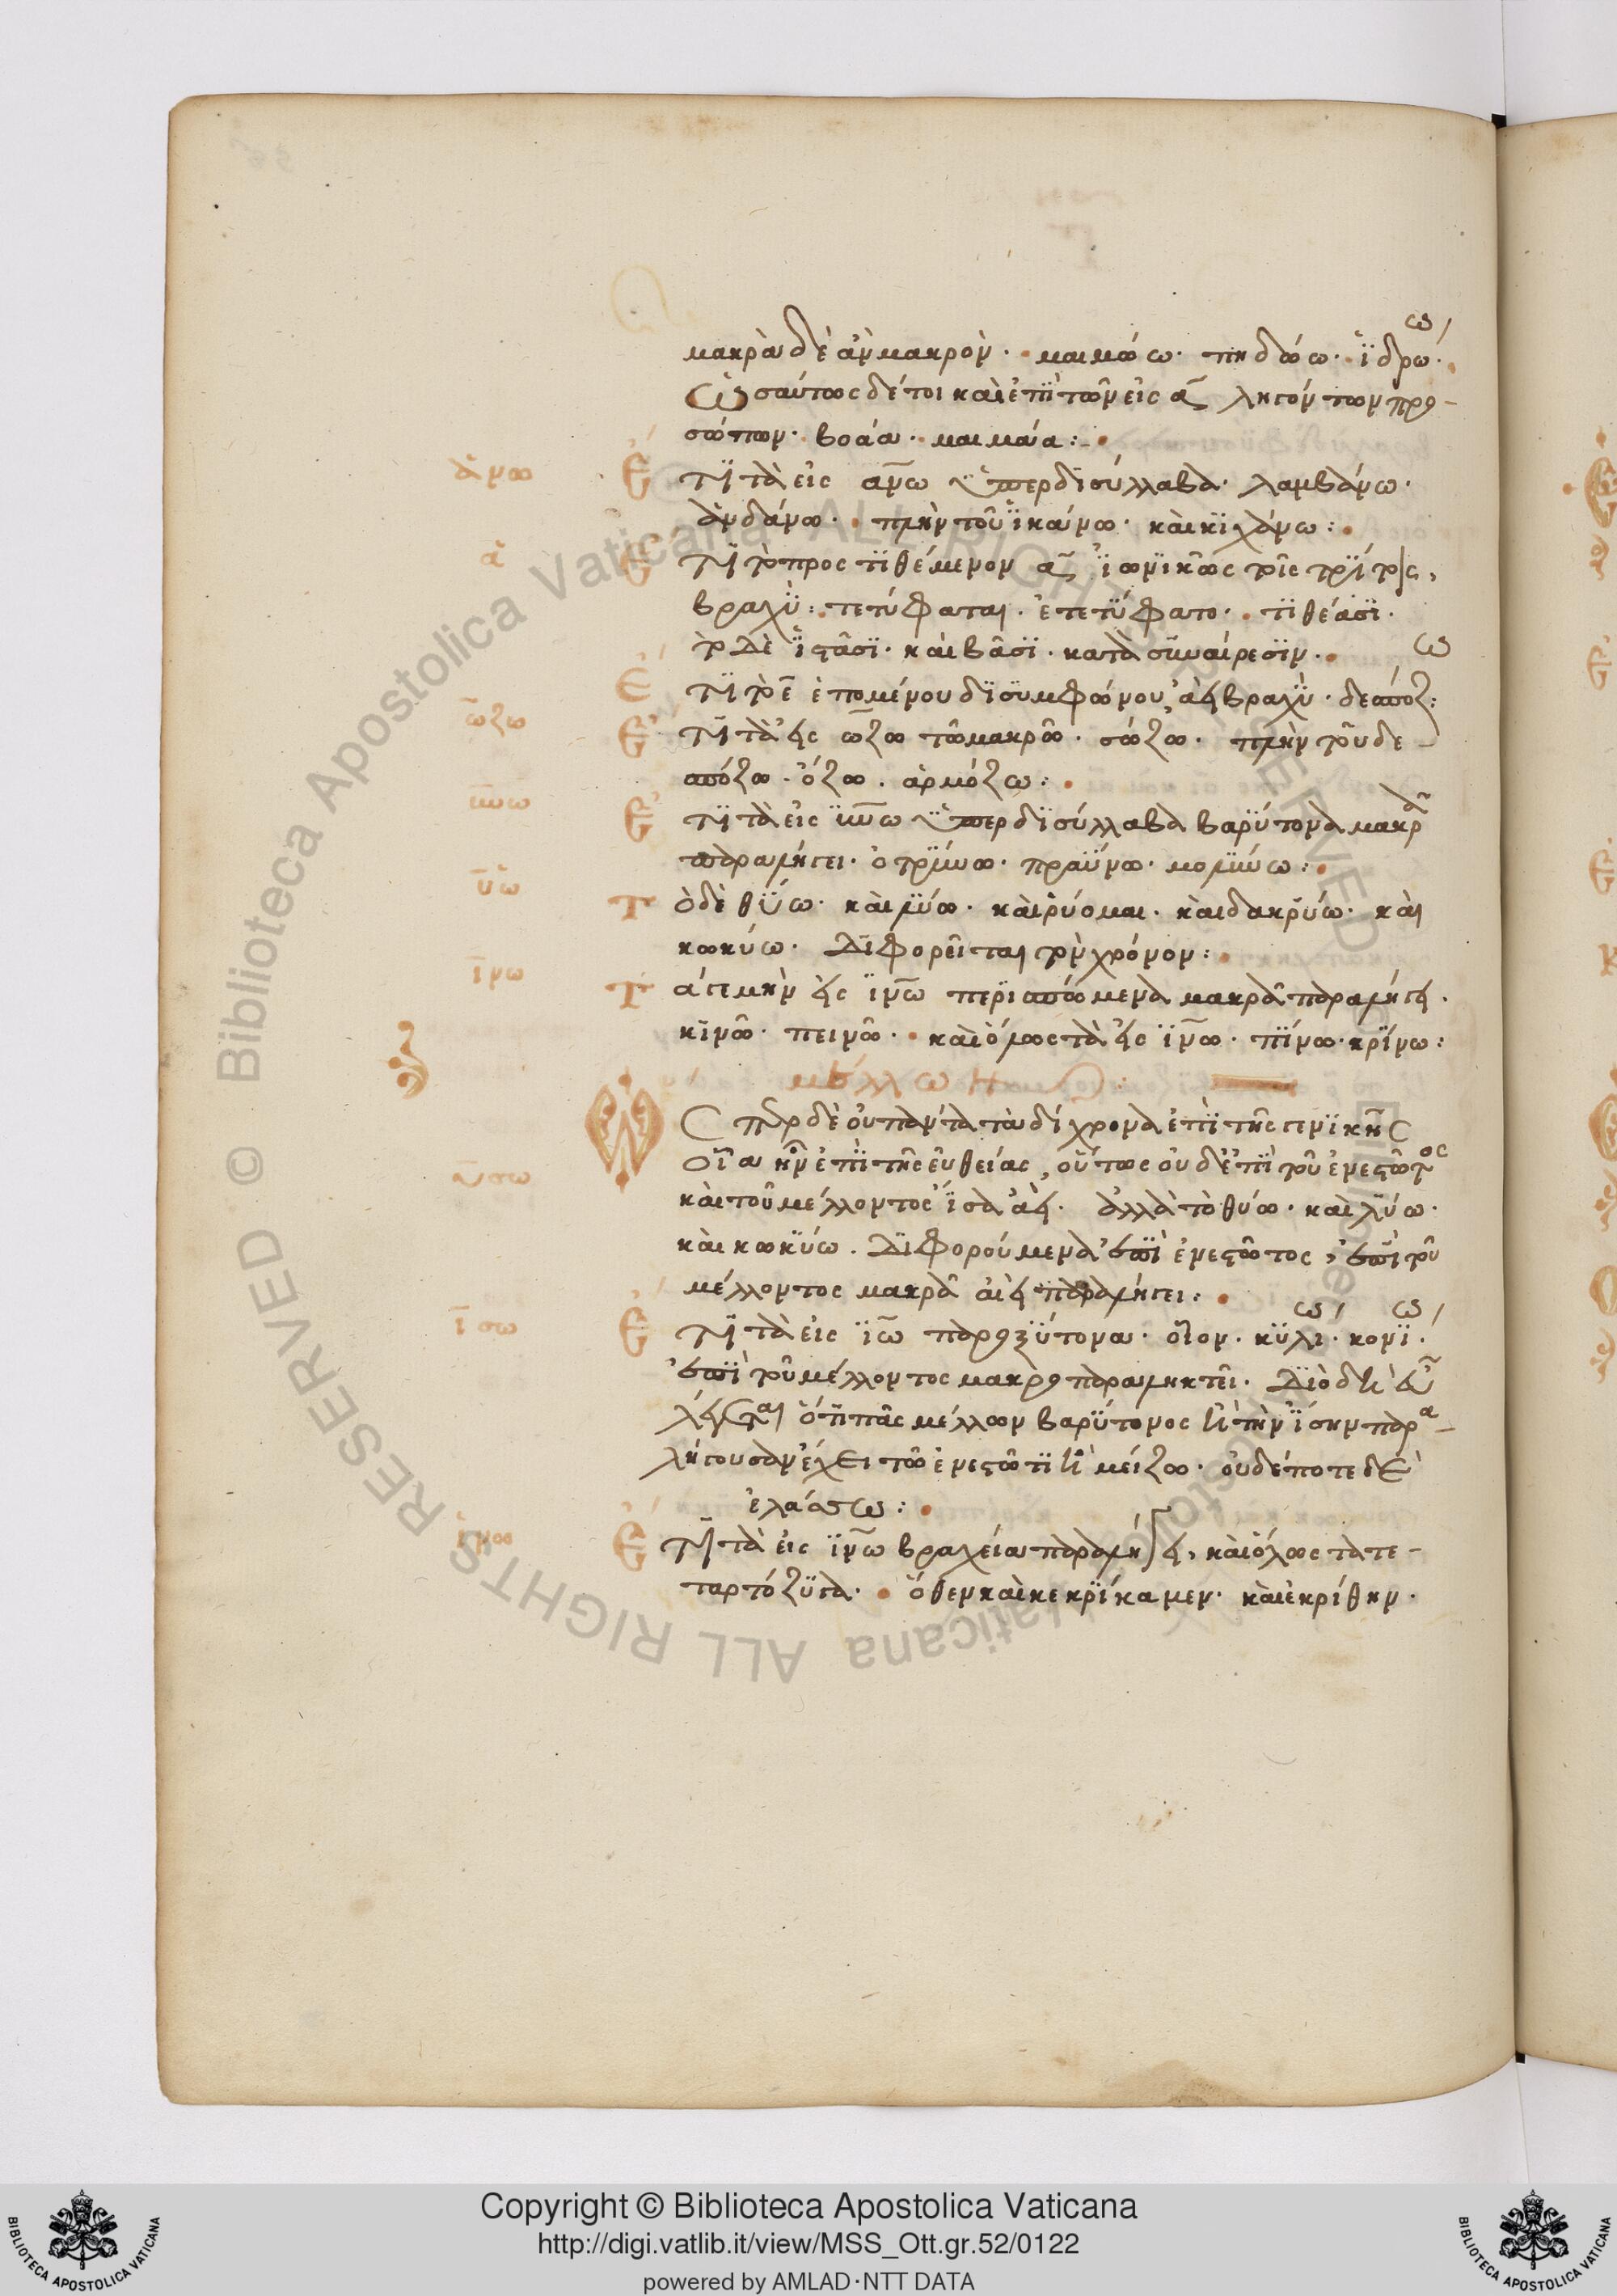 μακρὰ δὲ ἀν μακρὸν· μαιμώω· πηδώω· ἱδρώω·
Ὡσαύτως δέ τοι καὶ ἐπὶ τῶν εἰς α ληγόντων προ-
σώπων· βοάα· μαιμάα:
άνω
Ἔτι τὰ εἰς ανω ὑπερδισύλλαβα· λαμβάνω·
ἁνδάνω· πλὴν τοῦ ἱκάνω· καὶ κιχάνω:
α
Ἔτι τὸ προστιθέμενον α ἰωνικῶς τοῖς τρίτοις,
βραχύ: τετύφαται· ἐτετύφατο· τιθέασι·
τὸ δὲ ἱστᾶσι· καὶ βᾶσι· κατὰ συναίρεσιν·
Ἔτι τὸ ε ἑπομένου δισυμφώνου, ἀεὶ βραχύ· δεσπόζω:
ωζω
Ἔτι τὰ εἰς ωζω τῶ μακρῶ· σώζω· πλὴν τοῦ δε-
σπόζω· ὄζω· ἁρμόζω:
υνω
Ἔτι τὰ εἰς υνω ὑπερδισύλλαβα βαρύτονα μακρᾶ
παραλήγει· ὀτρύνω· πραύνω· μολύνω:
υω
Τὸ δὲ θύω· καὶ μύω· καὶ ῥύομαι· καὶ δακρύω· καὶ
κωκύω· διφορεῖται τὸν χρόνον:
ινω
Τά γε μὴν εἰς ινω περισπώμενα μακρᾶ παραλήγει·
κινῶ· πεινῶ· καὶ ὅμως τὰ εἰς ινω· πίνω· κρίνω:
Ὥσπερ δὲ οὐ πάντα τὰ δίχρονα ἐπὶ τῆς γενικῆς
οἷα ἦν ἐπὶ τῆς εὐθείας, οὕτως οὐδ' ἐπὶ τοῦ ἐνεστῶτος
υσω
καὶ τοῦ μέλλοντος ἴσα ἀεί· ἀλλὰ τὸ θύω· καὶ λύω·
καὶ κωκύω· διφορούμενα ἐπὶ ἐνεστῶτος, ἐπὶ τοῦ
μέλλοντος μακρᾶ ἀεὶ παραλήγει:
ισω
Ἔτι τὰ εἰς ιω παροξύτονα· οἷον· κυλίω· κονίω·
ἐπὶ τοῦ μέλλοντος μακροπαραληκτεῖ· διὸ δὴ εὖ
λέγεται ὅτι πᾶς μέλλων βαρύτονος ἢ τὴν ἴσην παρα-
λήγουσαν ἔχει τῶ ἐνεστῶτι ἢ μείζω· οὐδέποτε δὲ
ἐλάσσω:
ινω
Ἔτι τὰ εἰς ινω βραχεία παραλήγει, καὶ ὅλως τὰ τε-
ταρτόζυγα· ὅθεν καὶ κεκρίκαμεν· καὶ ἐκρίθην·
© Biblioteca Apostolica Vaticana ALL RIGHTS RESERVED
Copyright © Biblioteca Apostolica Vaticana
http://digi.vatlib.it/view/MSS_Ott.gr.52/0122
powered by AMLAD·NTT DATA
BIBLIOTECA APOSTOLICA VATICANA
BIBLIOTECA APOSTOLICA VATICANA